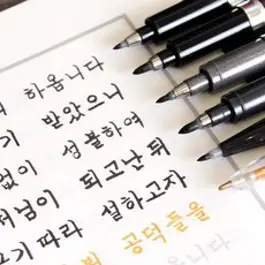 하옵니다
기 받았으니
없이 성불하여
님이 되고난 뒤
따라 설하고자
공덕들을